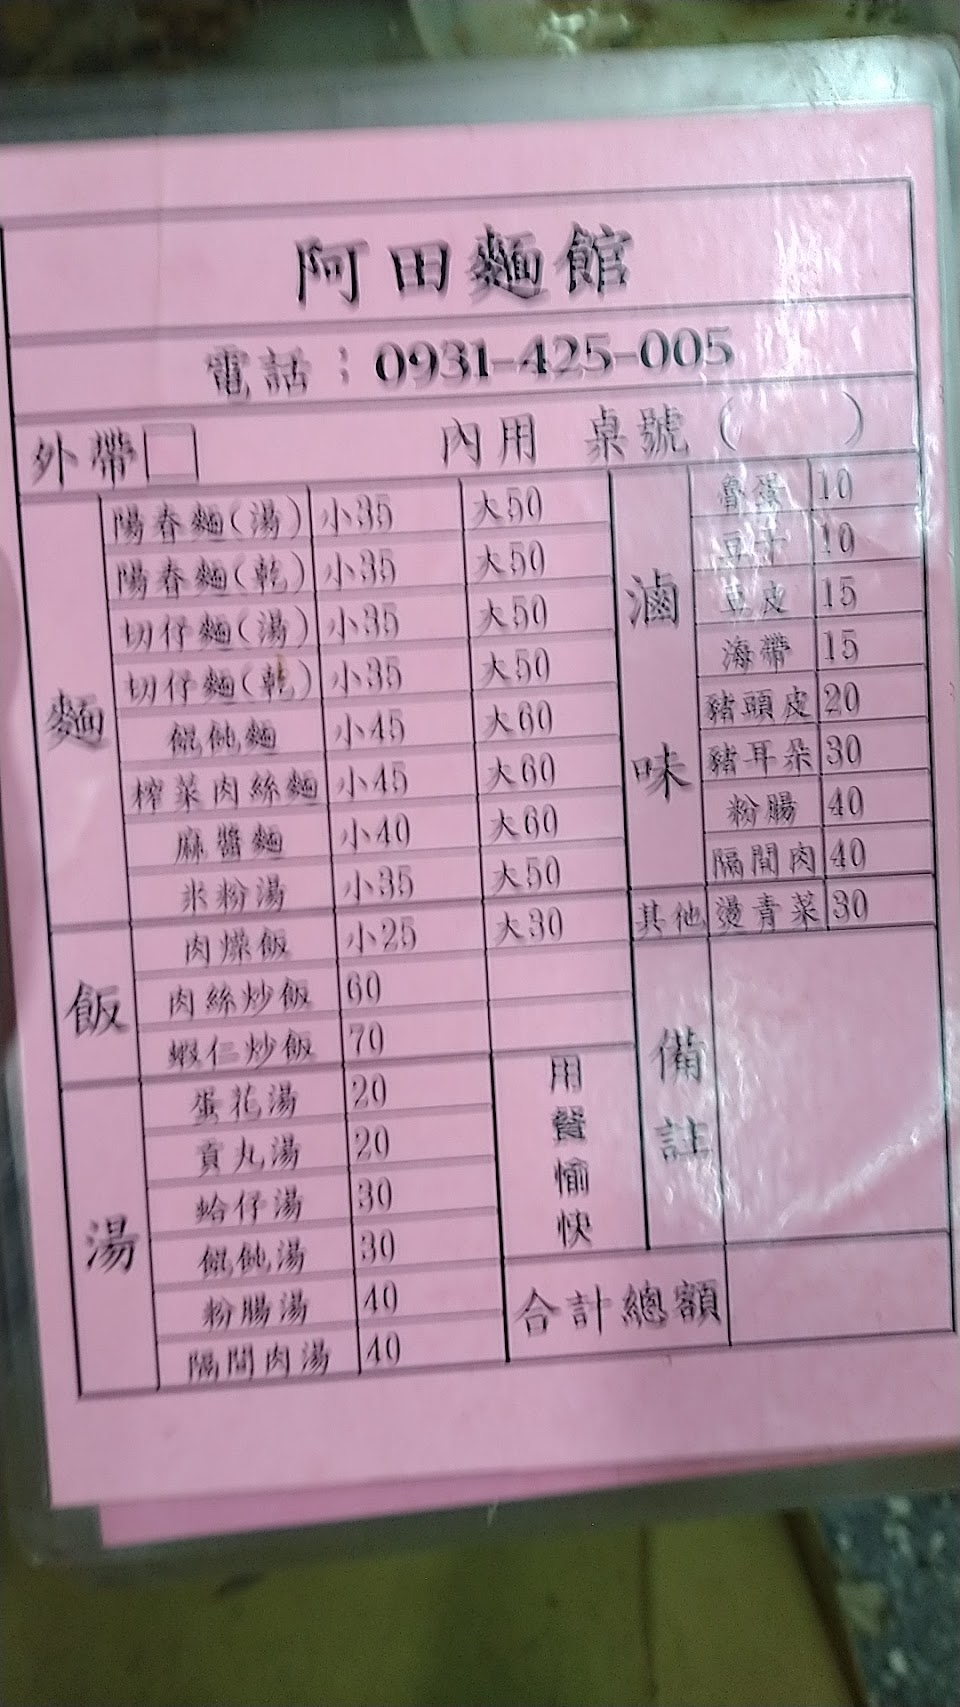 阿田麵館
電話：0931-425-005
外帶□ 內用 桌號（ ）
麵
陽春麵(湯) 小35 大50
陽春麵(乾) 小35 大50
切仔麵(湯) 小35 大50
切仔麵(乾) 小35 大50
餛飩麵 小45 大60
榨菜肉絲麵 小45 大60
麻醬麵 小40 大60
米粉湯 小35 大50
飯
肉燥飯 小25 大30
肉絲炒飯 60
蝦仁炒飯 70
湯
蛋花湯 20
貢丸湯 20
蛤仔湯 30
餛飩湯 30
粉腸湯 40
隔間肉湯 40
滷味
魯蛋 10
豆干 10
豆皮 15
海帶 15
豬頭皮 20
豬耳朵 30
粉腸 40
隔間肉 40
其他 燙青菜 30
備註
用餐愉快
合計總額